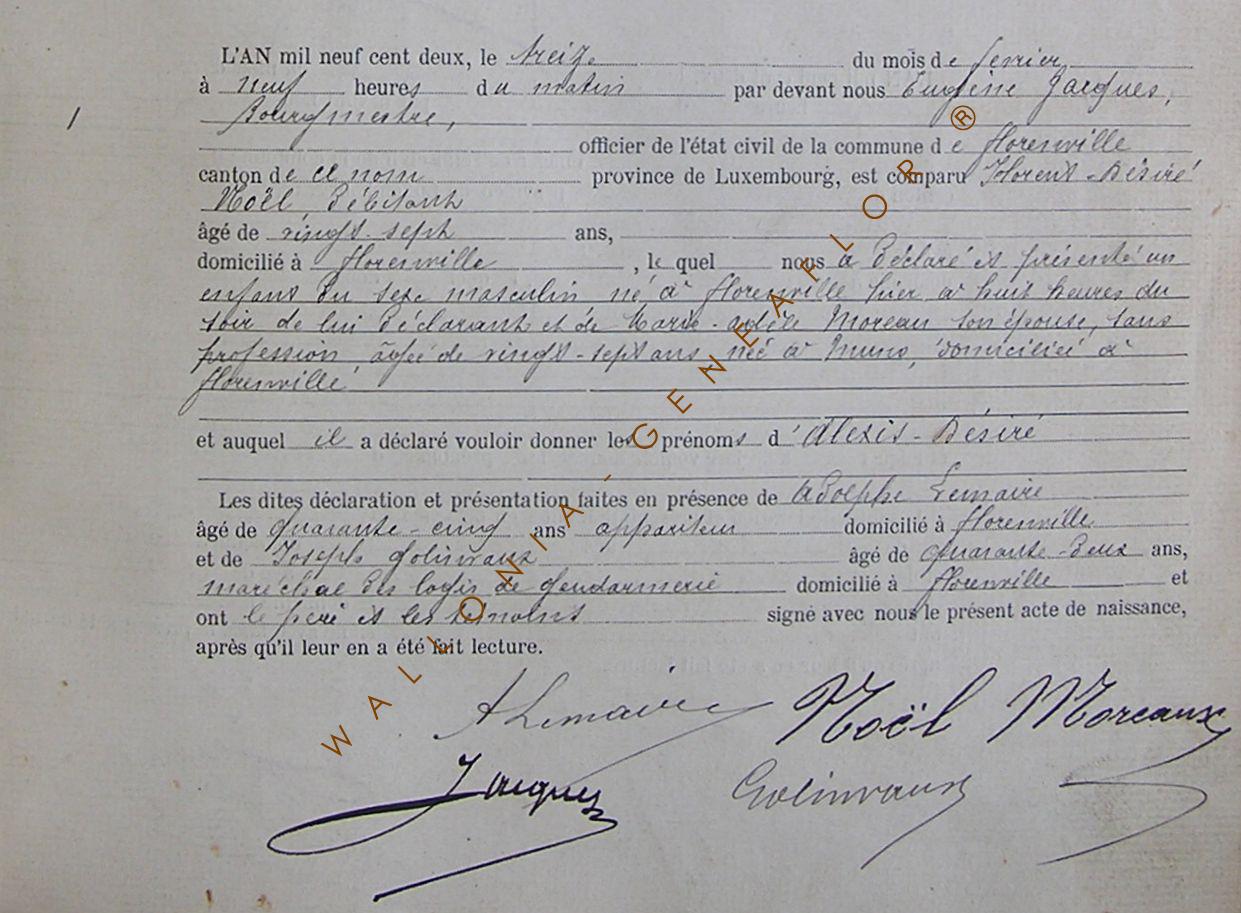 L'AN mil neuf cent deux, le treize du mois de fevrier
à neuf heures du matin par devant nous Eugène Jacques,
Bourgmestre,
officier de l'état civil de la commune de Florenville
canton de ce nom province de Luxembourg, est comparu Florent-Désiré
Noël, Débitant
âgé de vingt-sept ans,
domicilié à Florenville, lequel nous a déclaré et présenté un
enfant du sexe masculin né, à Florenville hier à huit heures du
soir de lui déclarant et de Marie-Adèle Moreau son épouse, sans
profession âgée de vingt-sept ans née à Muno, domiciliée à
Florenville
et auquel il a déclaré vouloir donner les prénoms d'Alexis-Désiré
Les dites déclaration et présentation faites en présence de Adolphe Lemaire
âgé de quarante-cinq ans appariteur domicilié à Florenville
et de Joseph Golinvaux âgé de quarante-deux ans,
maréchal des logis de gendarmerie domicilié à Florenville et
ont le père et les témoins signé avec nous le présent acte de naissance,
après qu'il leur en a été fait lecture.
ALemaire Noël Moreaux
Jacques Golinvaux
WALLONIA-GENEAFLOR®